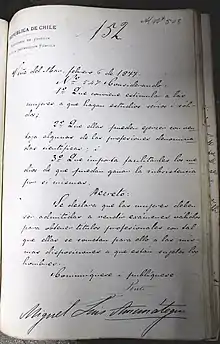 REPÚBLICA DE CHILE
132
Viña del Mar, febrero 6 de 1877.
Nº 547. Considerando:
1º Que conviene estimular a las
mujeres a que hagan estudios serios i só-
lidos;
2º Que ellas pueden ejercer con ven-
taja algunas de las profesiones denomina-
das científicas; i
3º Que importa facilitarles los me-
dios de que puedan ganar la subsistencia
por sí mismas,
Decreto:
Se declara que las mujeres deben
ser admitidas a rendir exámenes válidos
para obtener títulos profesionales con tal
que ellas se sometan para ello a las mis-
mas disposiciones a que están sujetos los
hombres.
Comuníquese i publíquese
Pinto
Miguel Luis Amunátegui